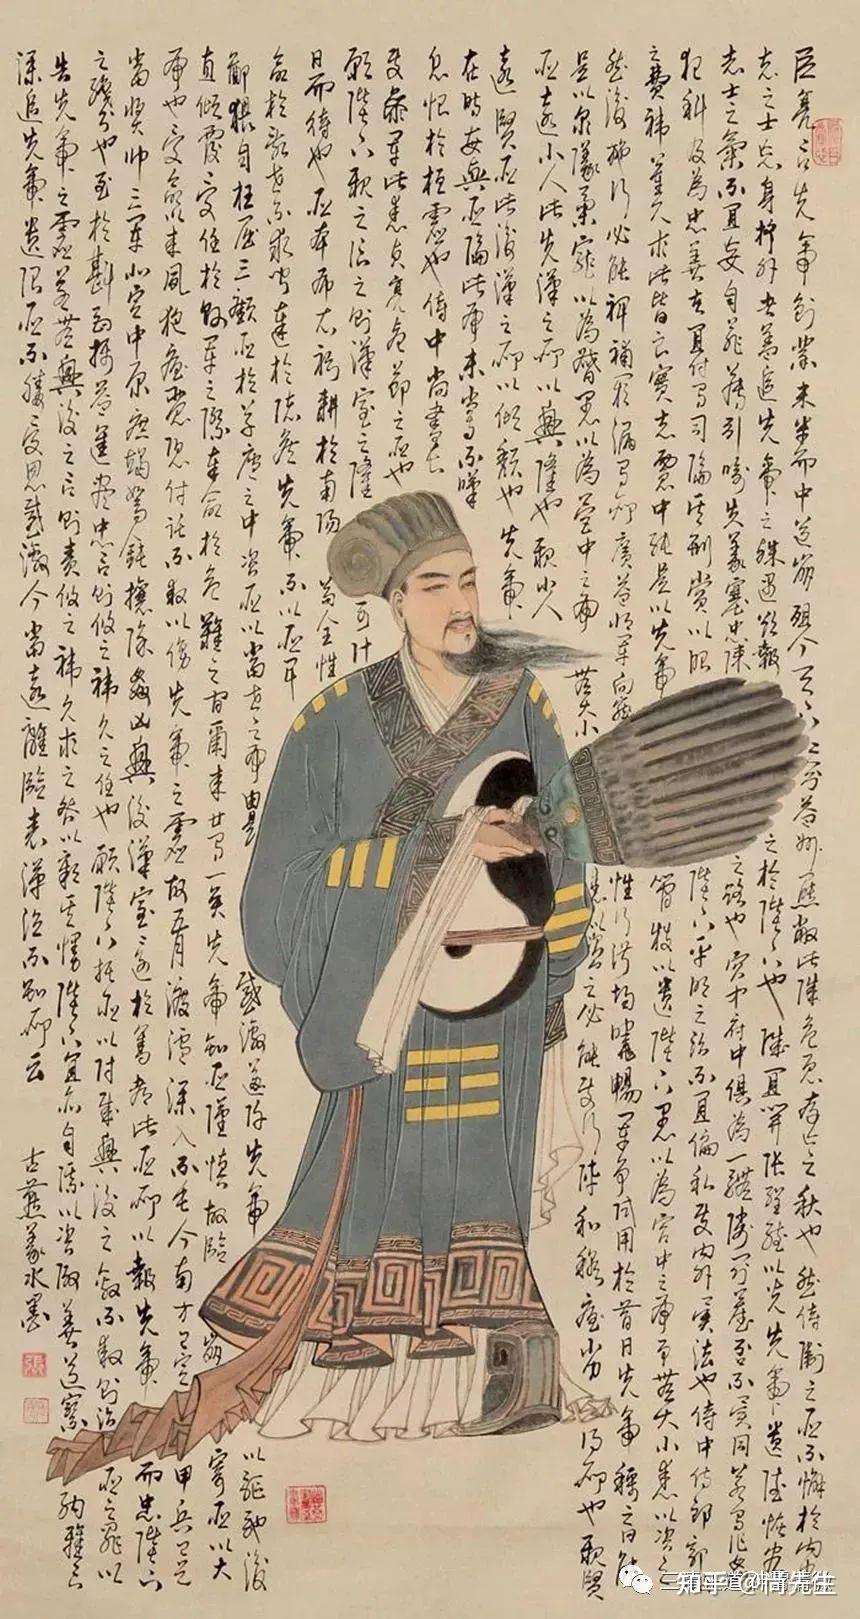 臣亮言先帝創業未半而中道崩殂今天下三分益州疲敝此誠危急存亡之秋也然侍衛之臣不懈於内忠
志之士忘身於外者蓋追先帝之殊遇欲報之於陛下也誠宜開張聖聽以光先帝遺德恢弘
志士之氣不宜妄自菲薄引喻失義塞忠諫之路也宮中府中俱為一體陟罰臧否不宜異同若有作奸
犯科及為忠善者宜付有司論其刑賞以昭陛下平明之治不宜偏私使内外異法也侍中侍郎郭攸
之費禕董允等此皆良實志慮忠純是以先帝簡拔以遺陛下愚以為宮中之事事無大小悉以咨之
然後施行必能裨補闕漏有所廣益將軍向寵性行淑均曉暢軍事試用於昔日先帝稱之曰能
是以眾議舉寵以為督愚以為營中之事無大小悉以咨之必能使行陣和穆優劣得所也親賢
臣遠小人此先漢之所以興隆也親小人
遠賢臣此後漢之所以傾頹也先帝
在時每與臣論此事未嘗不嘆
息恨於桓靈也侍中尚書長
史參軍此悉貞亮死節之臣也
願陛下親之信之則漢室之隆可計
日而待也臣本布衣躬耕於南陽苟全性
命於亂世不求聞達於諸侯先帝不以臣卑
鄙猥自枉屈三顧臣於草廬之中咨臣以當世之事由是感激遂許先帝以驅馳後
值傾覆受任於敗軍之際奉命於危難之間爾來廿有一矣先帝知臣謹慎故臨崩寄臣以大
事也受命以來夙夜憂恐付託不效以傷先帝之靈故五月渡瀘深入不毛今南方已定甲兵已足
當獎帥三軍北定中原庶竭駑鈍攘除姦凶興復漢室還於舊都此臣所以報先帝而忠陛下
之職分也至於斟酌損益進盡忠言則攸之禕允之任也願陛下托臣以討賊興復之效不效則治臣之罪以
告先帝之靈若無興復之言則責攸之禕允等之咎以彰其慢陛下宜亦自謀以咨諏善道察納雅言
深追先帝遺詔臣不勝受恩感激今當遠離臨表涕泣不知所云